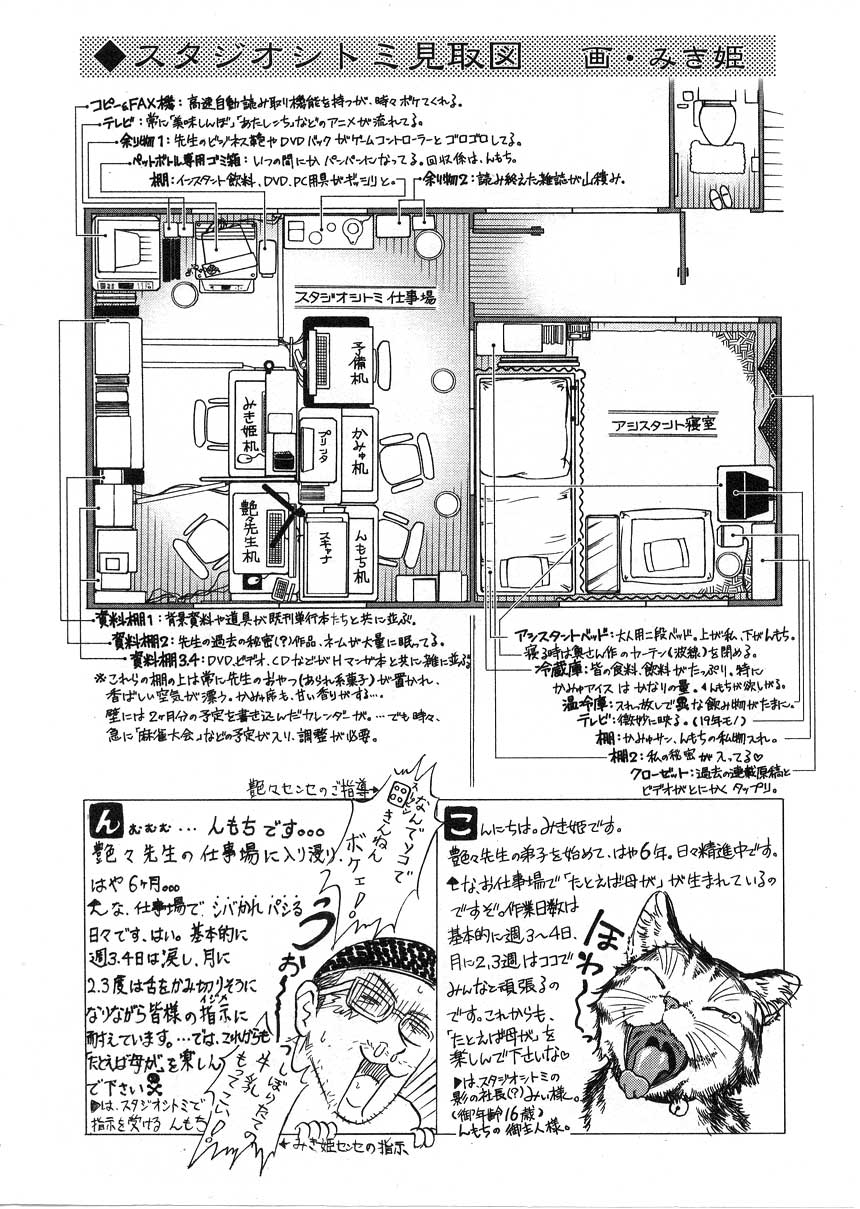 ◆スタジオシトミ見取図　画・みき姫
コピー&FAX機：高速自動読み取り機能を持つが、時々ボケてくれる。
テレビ：常に「美味しんぼ」「あたしンち」などのアニメが流れてる。
余り物1：先生のビジネス鞄やDVDパックがゲームコントローラーとゴロゴロしてる。
ペットボトル専用ゴミ箱：いつの間にかパンパンになってる。回収係は、んもち。
棚：インスタント飲料、DVD、PC用具がギッシリと。
余り物2：読み終えた雑誌が山積み。
スタジオシトミ仕事場
予備机
みき姫机
プリンタ
かみゅ机
艶々先生机
スキャナ
んもち机
アシスタント寝室
資料棚1：背景資料や道具が既刊単行本たちと共に並ぶ。
資料棚2：先生の過去の秘密(?)作品、ネームが大量に眠ってる。
資料棚3.4：DVD、ビデオ、CDなどがHマンガ本と共に雑に並ぶ。
※これらの棚の上は常に先生のおやつ(あられ系菓子)が置かれ、
香ばしい空気が漂う。かみゅ席も、甘い香りがする…。
壁には2ヶ月分の予定を書き込んだカレンダーが。…でも時々、
急に「麻雀大会」などの予定が入り、調整が必要。
アシスタントベッド：大人用二段ベッド。上が私、下がんもち。
寝る時は奥さん作のカーテン(波線)を閉める。
冷蔵庫：皆の食料、飲料がたっぷり。特に
かみゅアイスはかなりの量。んもちが欲しがる。
温冷庫：スれっ放しで異な飲み物がたまに。
テレビ：微妙に映る。(19年モノ)
棚：かみゅサン、んもちの私物入れ。
棚2：私の秘密が入ってる♡
クローゼット：過去の連載原稿と
ビデオがとにかくタップリ。
艶々センセのご指導→
なんでソコで
きんねん
ボケェ！
んむむむ…んもちです。。。
艶々先生の仕事場に入り浸り、
はや6ヶ月。。。
そんな、仕事場で、シバかれパシる
日々です、はい。基本的に
週3.4日は戻し、月に
2.3度は舌をかみ切りそうに
なりながら皆様の指示に
イジメ
耐えています。…では、これからも
「たとえば母が」を楽しん
で下さい☠
▶は、スタジオシトミで
指示を受けるんもち
うぉーっ
しぼりたての
牛乳
もってこい！
←みき姫センセの指示
こんにちは。みき姫です。
艶々先生の弟子を始めて、はや6年。日々精進中です。
そんな、お仕事場で「たとえば母が」が生まれているの
ですぞ。作業日数は
基本的に週3〜4日、
月に2,3週はココで
みんなと頑張るの
です。これからも、
「たとえば母が」を
楽しんで下さいな♡
▶は、スタジオシトミの
影の社長(?)みぃ様〜。
(御年齢16歳)
んもちの御主人様。
ほわ〜っ